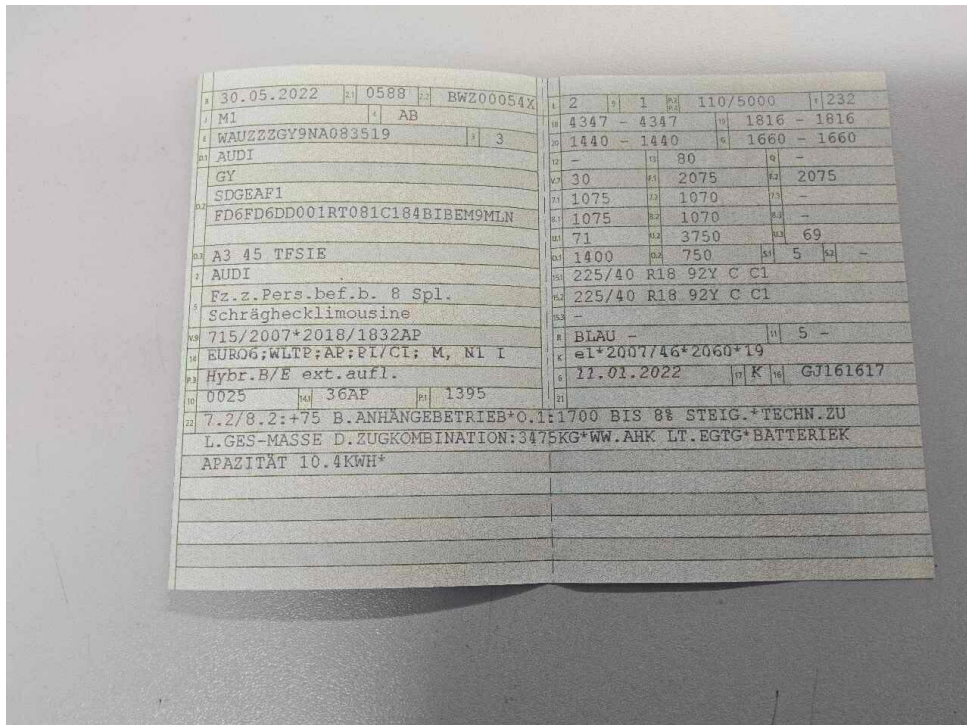 B 30.05.2022 2.1 0588 2.2 BWZ00054X
J M1 4 AB
E WAUZZZGY9NA083519 3 3
D.1 AUDI
D.2 GY
SDGEAF1
FD6FD6DD001RT081C184BIBEM9MLN
D.3 A3 45 TFSIE
2 AUDI
5 Fz.z.Pers.bef.b. 8 Spl.
Schräghecklimousine
V.9 715/2007*2018/1832AP
14 EURO6;WLTP;AP;PI/CI; M, N1 I
P.3 Hybr.B/E ext.aufl.
10 0025 14.1 36AP P.1 1395
L 2 9 1 P.2 P.4 110/5000 T 232
18 4347 - 4347 19 1816 - 1816
20 1440 - 1440 G 1660 - 1660
12 - 13 80 Q -
V.7 30 F.1 2075 F.2 2075
7.1 1075 7.2 1070 7.3 -
8.1 1075 8.2 1070 8.3 -
U.1 71 U.2 3750 U.3 69
O.1 1400 O.2 750 S.1 5 S.2 -
15.1 225/40 R18 92Y C C1
15.2 225/40 R18 92Y C C1
15.3 -
R BLAU - 11 5 -
K e1*2007/46*2060*19
6 11.01.2022 17 K 16 GJ161617
21
22 7.2/8.2:+75 B.ANHÄNGEBETRIEB*O.1:1700 BIS 8% STEIG.*TECHN.ZU
L.GES-MASSE D.ZUGKOMBINATION:3475KG*WW.AHK LT.EGTG*BATTERIEK
APAZITÄT 10.4KWH*